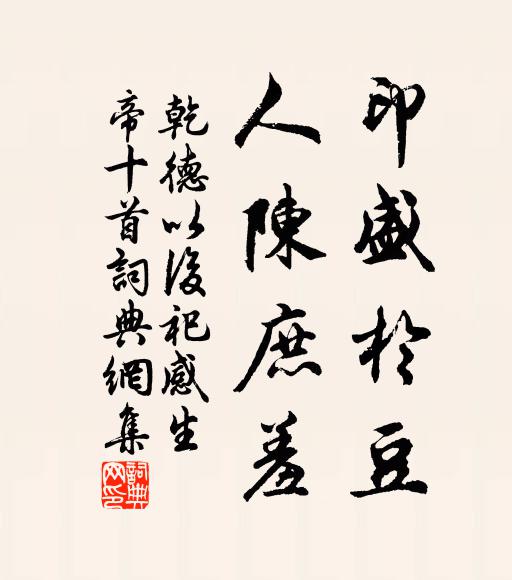 印盛於豆
人陳庶羞
乾德以後祀感生
帝十首詞典網集
詞典
网印